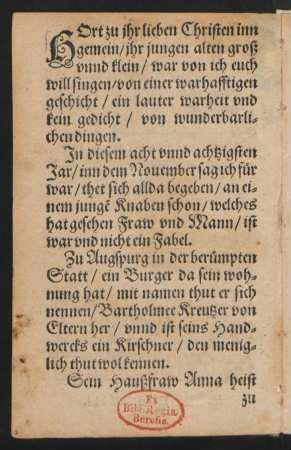 HOrt zu jhr lieben Christen inn
gemein / jhr jungen alten groß
vnnd klein / war von ich euch
will singen / von einer warhafftigen
geschicht / ein lauter warheit vnd
kein gedicht / von wunderbarli-
chen dingen.
Jn diesem acht vnnd achtzigsten
Jar / inn dem Nouember sag ich für
war / thet sich allda begeben / an ei-
nem jungẽ Knaben schon / welches
hat gesehen Fraw vnd Mann / ist
war vnd nicht ein Fabel.
Zu Augspurg in der berümpten
Statt / ein Burger da sein woh-
nung hat / mit namen thut er sich
nennen / Bartholmee Kreutzer von
Eltern her / vnnd ist seins Hand-
wercks ein Kirschner / den menig-
lich thut wol kennen.
Sein Haußfraw Anna heist
zu
Ex
Bibl. Regia
Berolin.